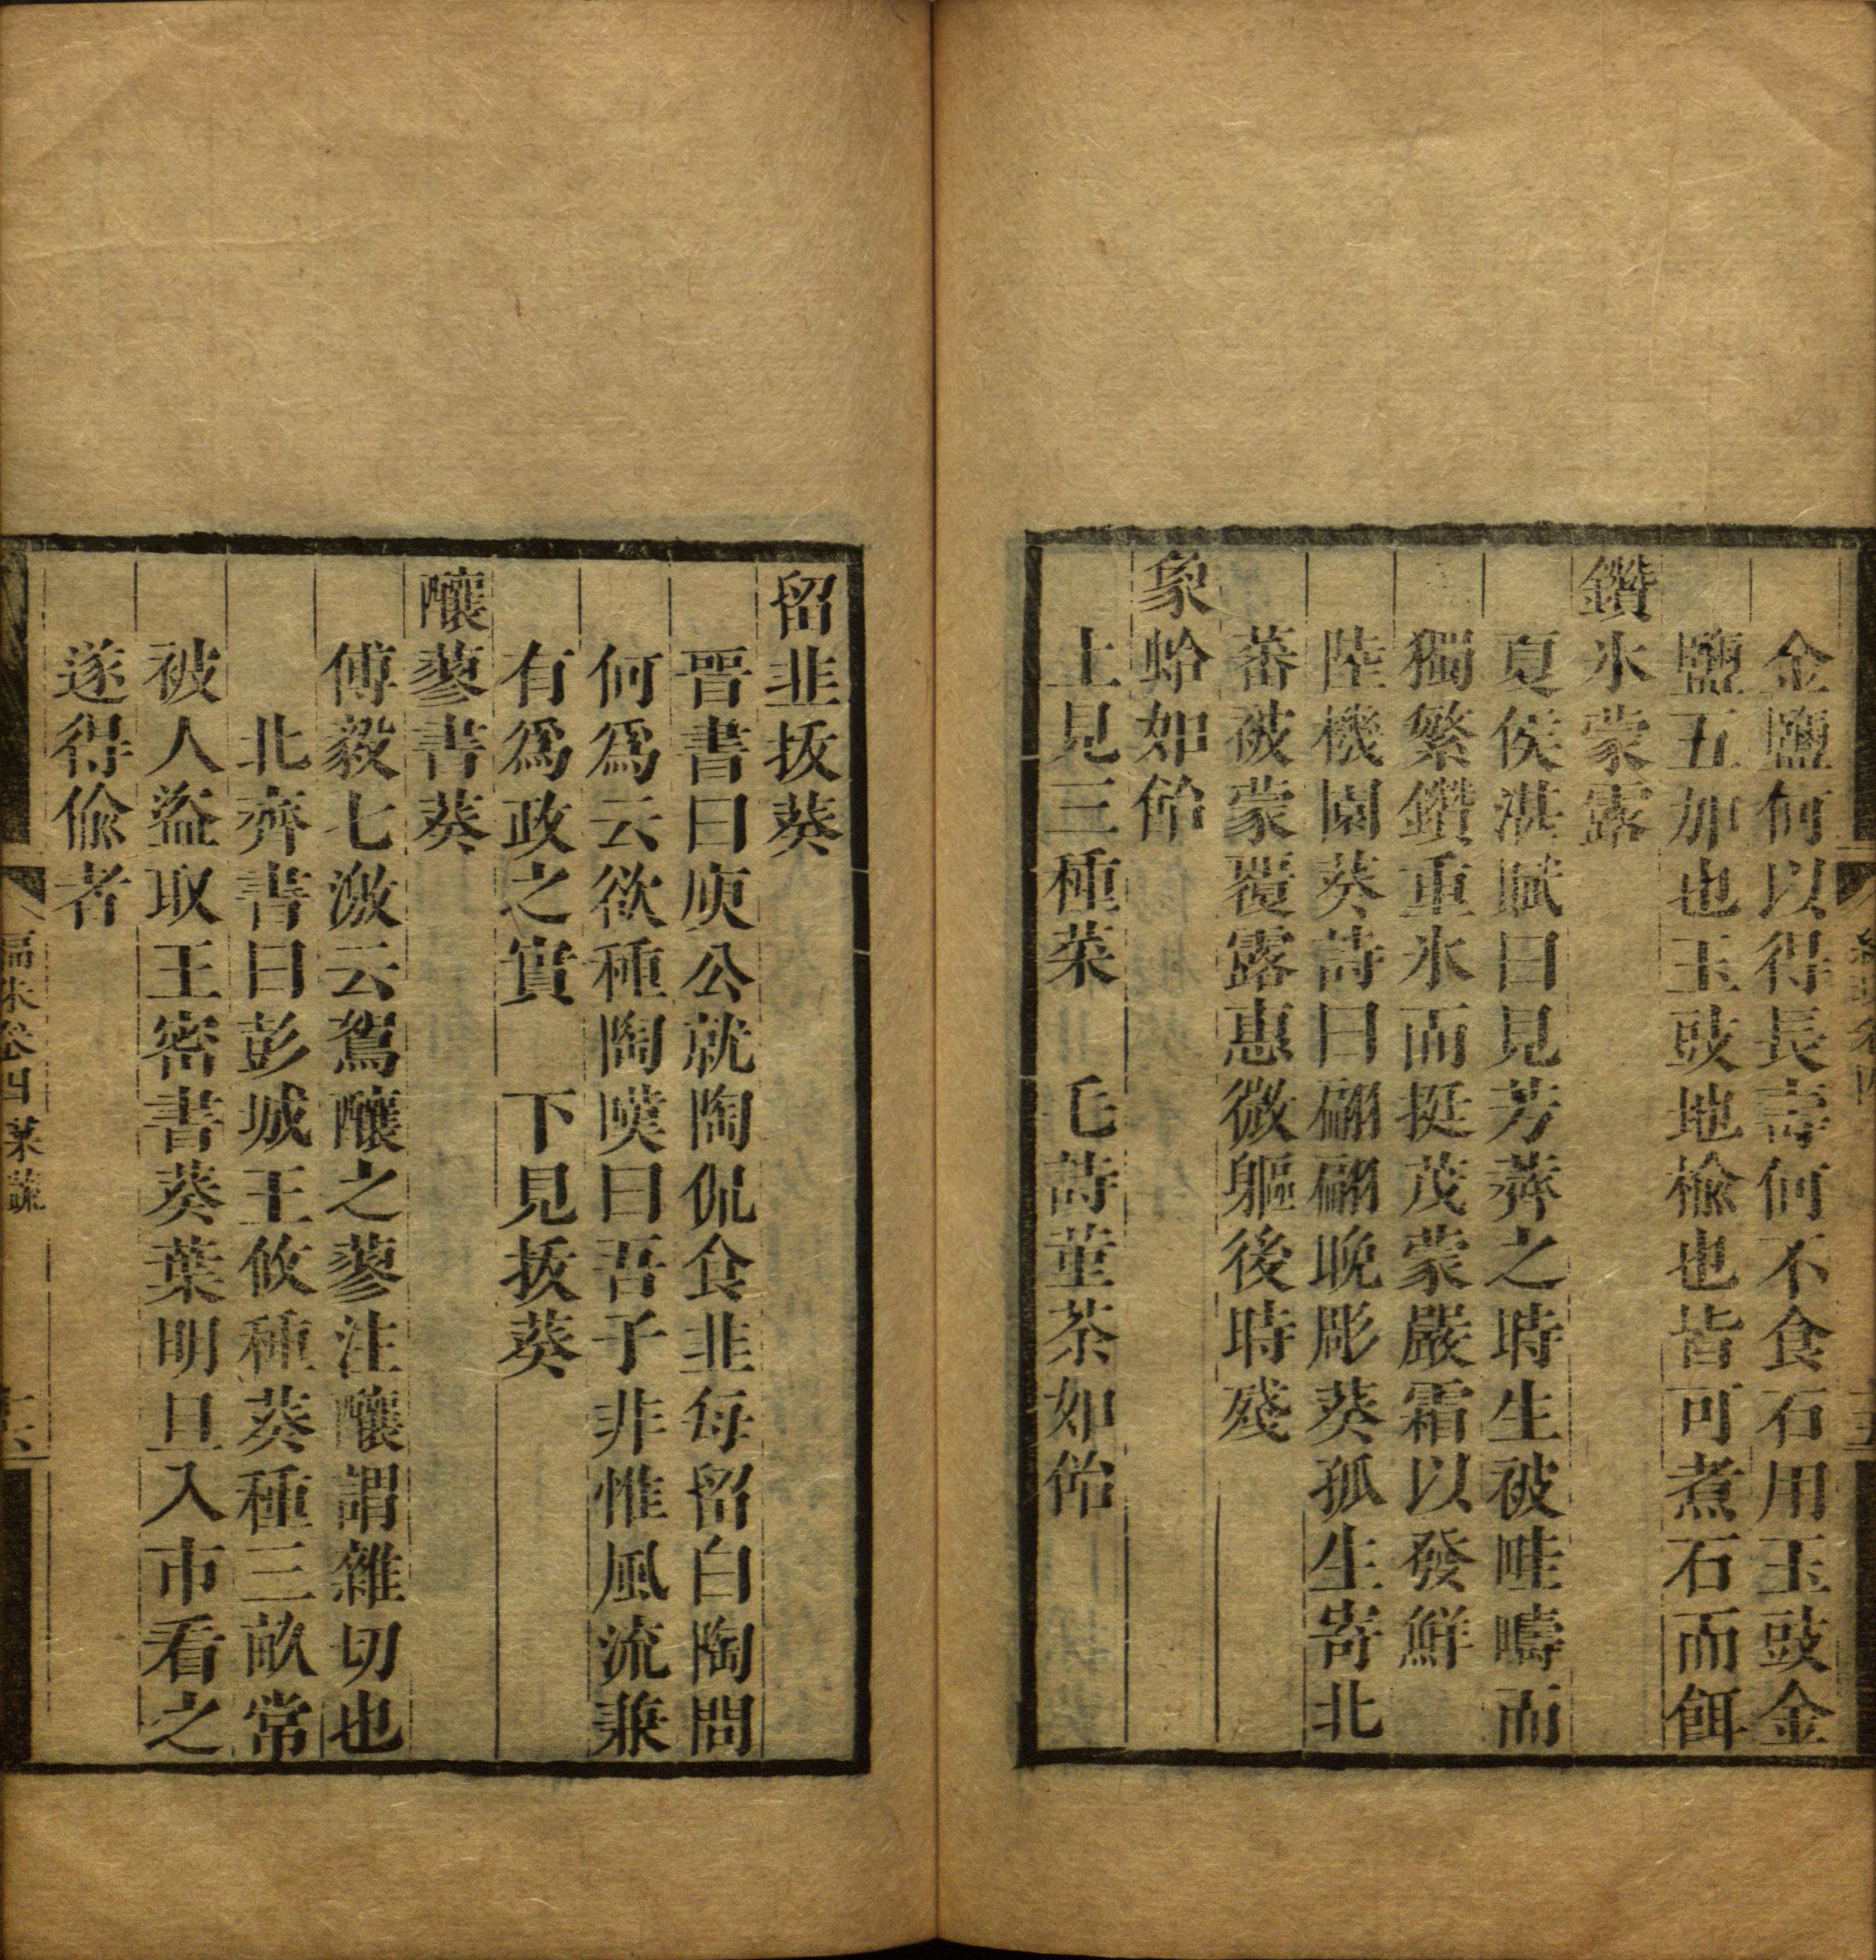 金鹽何以得長壽何不食石用玉豉金
鹽五加也玉豉地楡也皆可煮石而餌
鑽氷蒙露
夏侯湛賦曰見芳薺之時生被畦疇而
獨繁鑽重氷而挺茂蒙嚴霜以發鮮
陸機園葵詩曰翩翩晚彫葵孤生寄北
蕃被蒙覆露惠微軀後時殘
象蛤如飴
上見三種菜　毛詩堇荼如飴
留韭拔葵
晉書曰庾公就陶侃食韭每留白陶問
何爲云欲種陶嘆曰吾子非惟風流兼
有爲政之實　下見拔葵
釀蓼書葵
傅毅七激云鴐釀之蓼注釀謂雜切也
北齊書曰彭城王攸種葵種三畝常
被人盜取王密書葵葉明旦入市看之
遂得偸者
菜蔬
十六